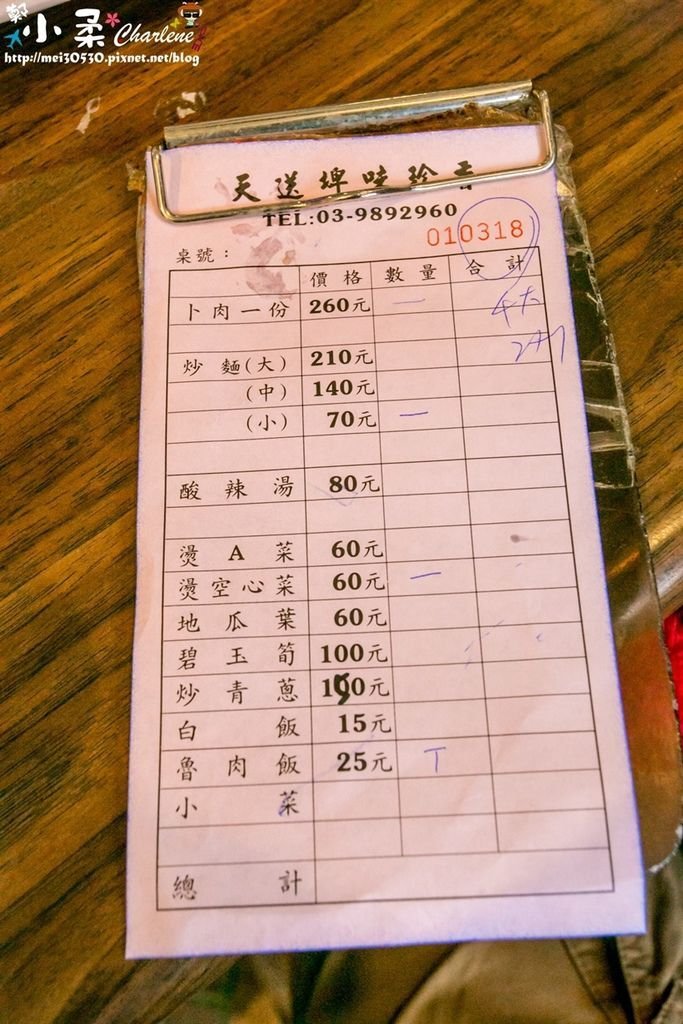 鄭小柔 Charlene
http://mei30530.pixnet.net/blog
天送埤味珍香
TEL:03-9892960
010318
桌號：
價格 數量 合計
卜肉一份 260元 一
4大
2小
炒麵(大) 210元
(中) 140元
(小) 70元 一
酸辣湯 80元
燙A菜 60元
燙空心菜 60元 一
地瓜葉 60元
碧玉筍 100元
炒青蔥 150元
白飯 15元
魯肉飯 25元 T
小菜
總計